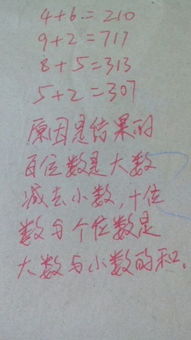 4+6=210
9+2=711
8+5=313
5+2=307
原因是结果的
百位数是大数
减去小数,十位
数与个位数是
大数与小数的和。